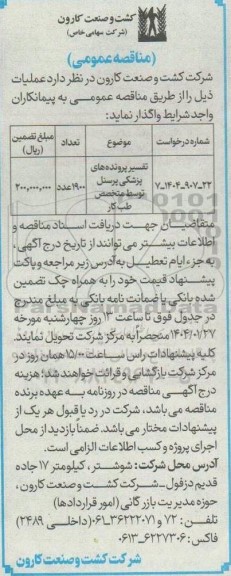 کشت و صنعت کارون
(شرکت سهامی خاص)
(مناقصه عمومی)
شرکت کشت و صنعت کارون در نظر دارد عملیات
ذیل را از طریق مناقصه عمومی به پیمانکاران
واجد شرایط واگذار نماید:
شماره درخواست موضوع تعداد مبلغ تضمین (ریال)
۷-۱۴۰۴-۹۰۷-۲۲ تفسیر پرونده‌های پزشکی پرسنل توسط متخصص طب کار ۱۹۰۰ عدد ۲۰۰,۰۰۰,۰۰۰
متقاضیان جهت دریافت اسناد مناقصه و
اطلاعات بیشتر می توانند از تاریخ درج آگهی،
به جزء ایام تعطیل به آدرس زیر مراجعه و پاکت
پیشنهاد قیمت خود را به همراه چک تضمین
شده بانکی یا ضمانت نامه بانکی به مبلغ مندرج
در جدول فوق تا ساعت روز چهارشنبه مورخه
۱۴۰۴/۰۱/۲۷ منحصراً به مرکز شرکت تحویل نمایند.
کلیه پیشنهادات راس ساعت ۱۵/۰۰ همان روز در
مرکز شرکت بازگشائی و قرائت خواهند شد؛ هزینه
درج آگهی مناقصه در روزنامه به عهده برنده
مناقصه می باشد، شرکت در رد یا قبول هر یک از
پیشنهادات مختار می باشد. ضمناً بازدید از محل
اجرای پروژه و کسب اطلاعات الزامی است.
آدرس محل شرکت: شوشتر، کیلومتر ۱۷ جاده
قدیم دزفول - شرکت کشت و صنعت کارون،
حوزه مدیریت بازرگانی (امور قراردادها)
تلفن: ۷۲ و ۳۶۲۲۲۰۷۱-۰۶۱ (داخلی ۲۴۸۹)
فاکس: ۶۲۲۷۳۰۶-۰۶۱۳
شرکت کشت و صنعت کارون